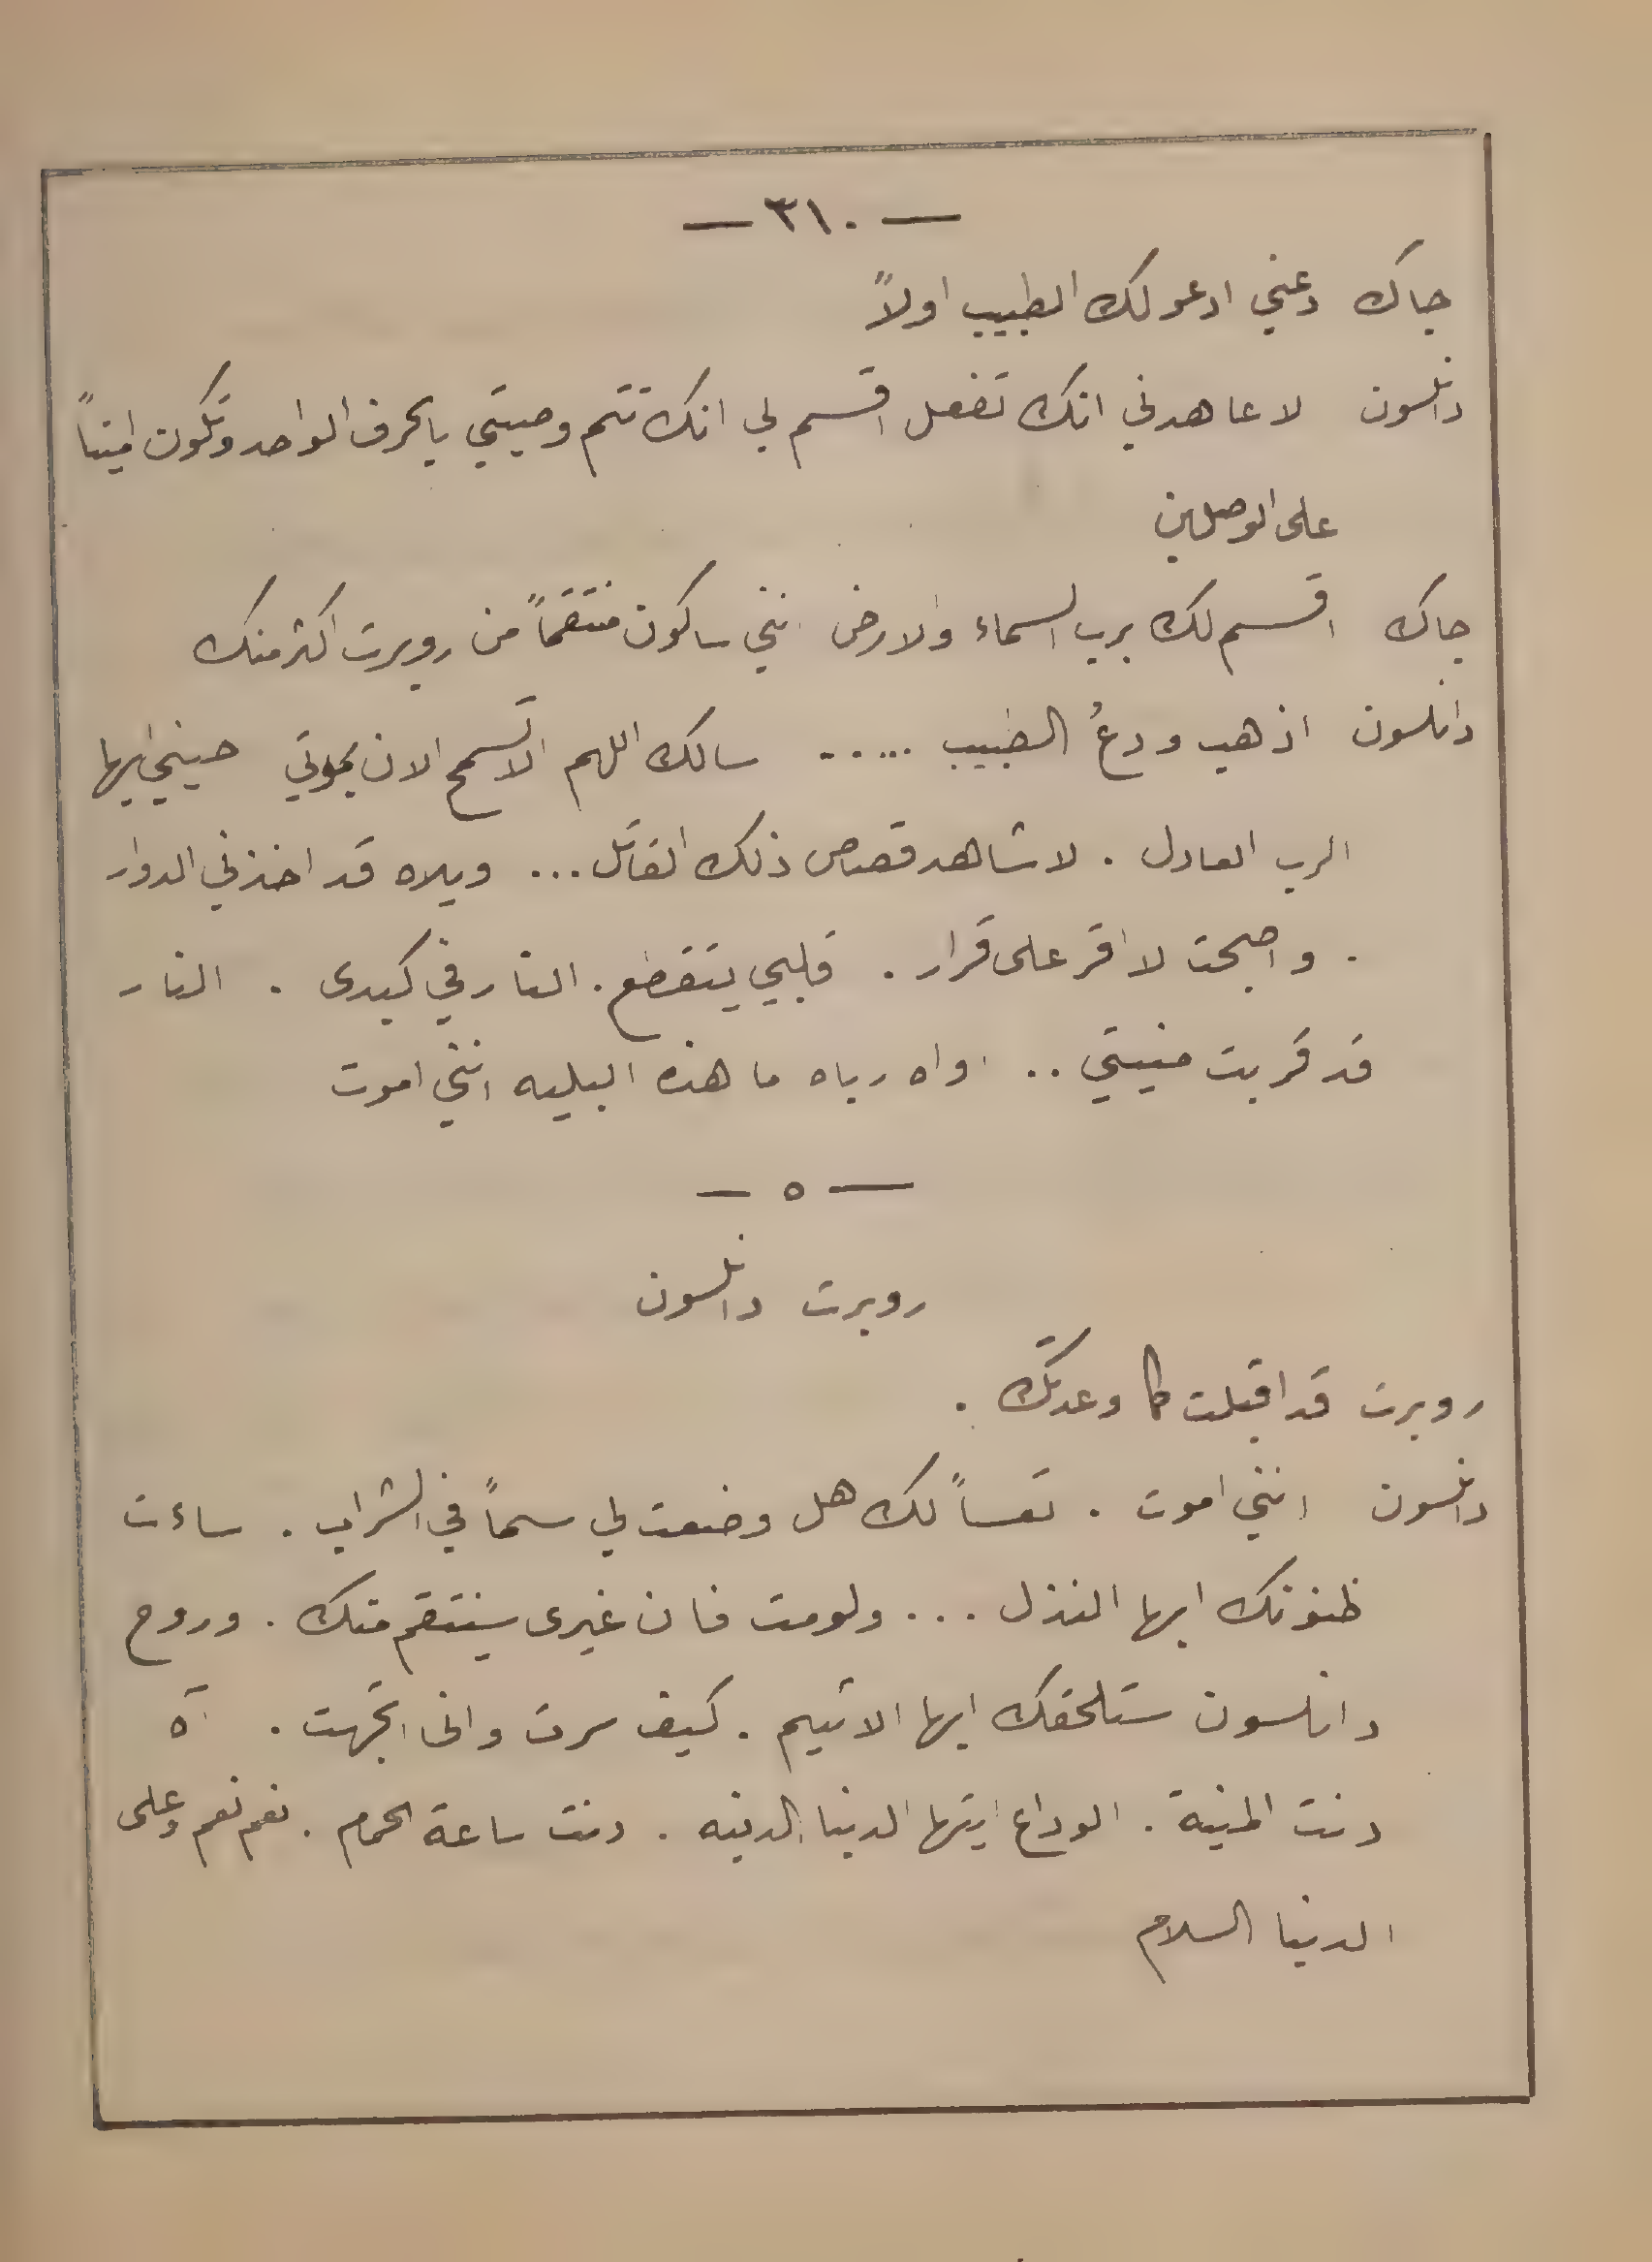 — ٣١٠ —
جاك دعني ادعو لك الطبيب اولاً
دانلسون لا عاهدني انك تفعل اقسم لي انك تتم وصيتي بالحرف الواحد وتكون اميناً
على الوصلين
جاك اقسم لك برب السماء والارض انني ساكون منتقماً من روبرت اكثر منك
دانلسون اذهب ودعُ الطبيب ..... سالك اللهم الا تسمح الان بموتي حيني ايها
الرب العادل . لاشاهد قصاص ذلك القاتل ... ويلاه قد اخذني الدوار
. واصبحت لا اقر على قرار . قلبي يتقطع . النار في كبدى . النار
قد قربت منيتي .. اواه رباه ما هذه البليه انني اموت
— ٥ —
روبرت دانلسون
روبرت قد اقبلت كما وعدتك .
دانلسون انني اموت . تعساً لك هل وضعت لي سماً في الشراب . ساءت
ظنونك ايها النذل ... ولومت فان غيرى سينتقم منك . وروح
دانلسون ستلحقك ايها الاثيم . كيف سرت وانى اتجهت . آه
دنت المنية . الوداع ايتها الدنيا الدنيه . دنت ساعة الحمام . نعم نعم وعلى
الدنيا السلام